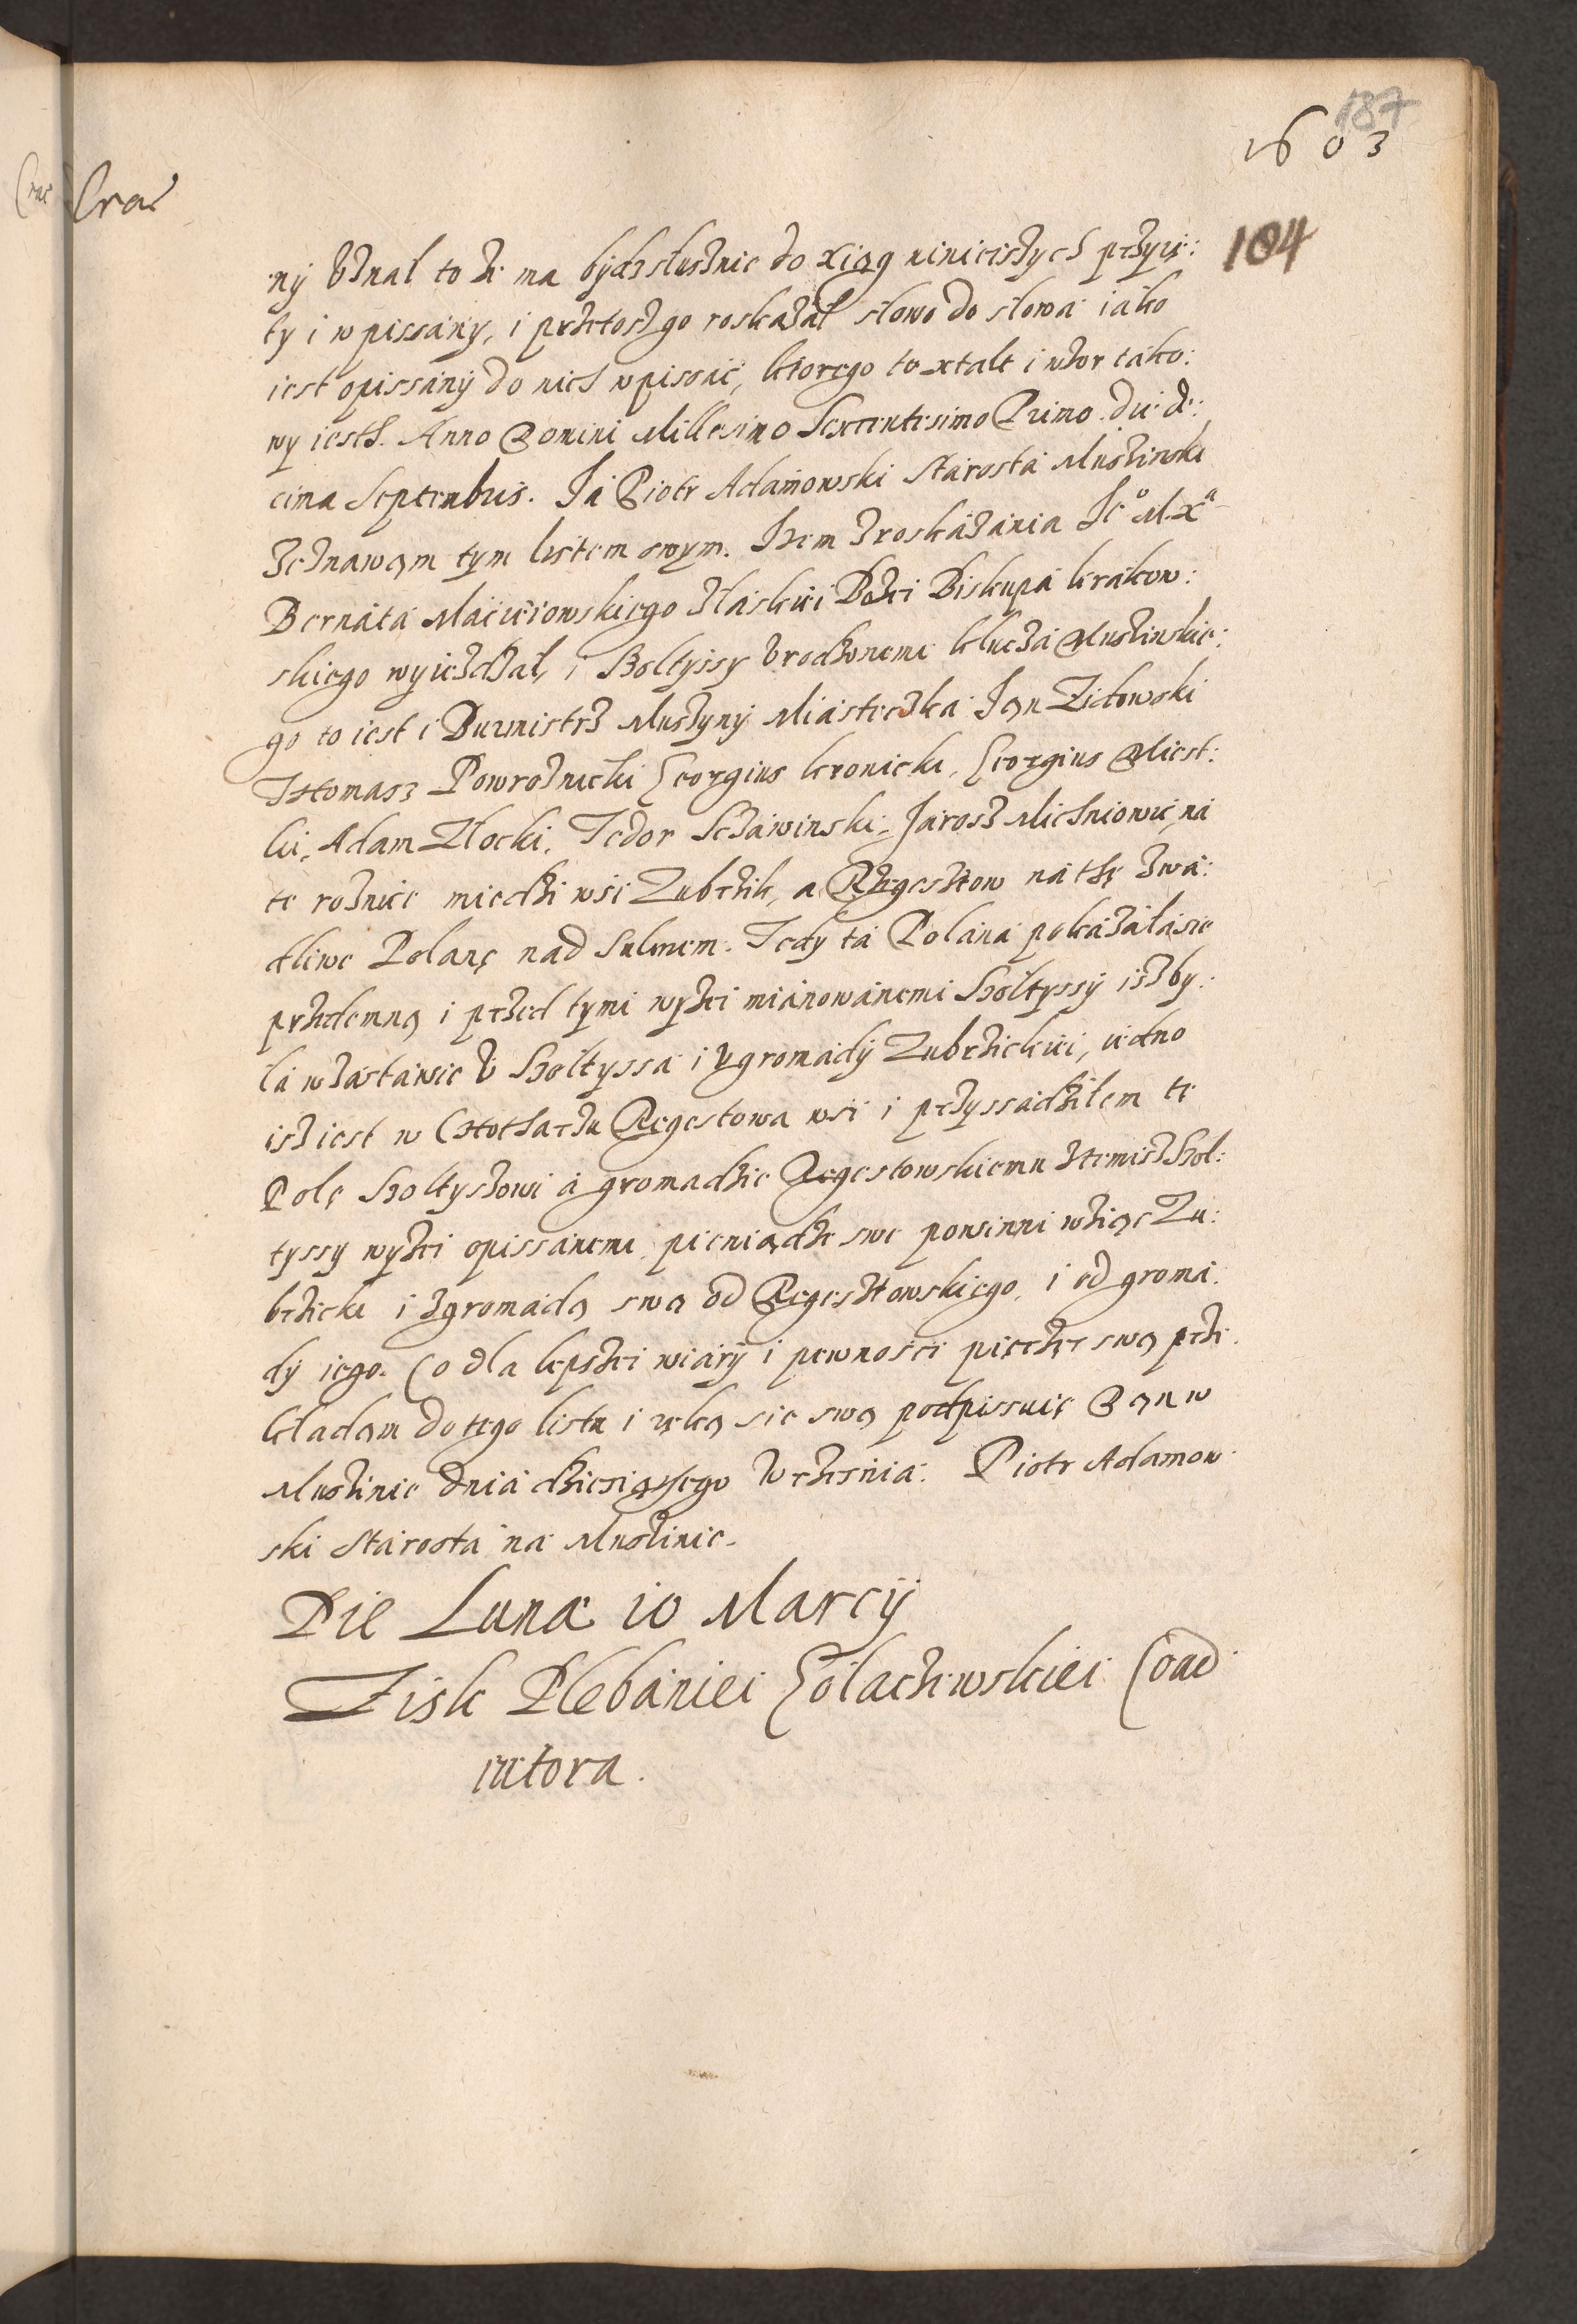 187
1603
Crac Crac
104
ny vznal to że ma bydź słusznie do xiąg ninieiszych przyię:
ty i wpissany, i przetoszgo roskazał słowo do słowa iako
iest opissany do nich wpisać, ktorego to xtałt i wzor tako:
wy iesth. Anno Domini Millesimo Sexcentesimo Primo die de:
cima Septembris. Ja Piotr Adamowski Starosta Muszinski
zeznawąm tym listem swym. Jżem z roskazania Je° M. Xª
Bernata Macieiowskiego z łaskiei Bożei Biskupa krakow:
skiego wyieżdżał, i Szołtyssy vrodzonemi klucza Muszinskie:
go to iest i Burmistrz Muszyny Miasteczka Jąn Zidowski
Thomasz Powroznicki Georgius kronicki, Georgius Miest:
ki, Adam Złocki, Fedor Sczawinski, Jarosz Michniowie, na
te roznice miedzi wsi Zubrzik, a Rzegesztow na thę zwa:
dliwe Polanę nad Sulinem. Tedy ta Polana pokazałasie
przedemną i przed tymi wyżei mianowanemi Szołtyssy isz by:
ła w zastawie v Szołtyssa i v gromady Zubrzickiei, iedno
isz iest w Chotharzu Regestowa wsi i przyssadziłem te
Polę Szołtyszowi a gromadzie Regestowskiemu ztemisz Szoł:
tyssy wyżei opissanemi, pieniądze swe powinni wziąc Zu:
brzicki i z gromadą swą od Regesztowskiego, i od groma:
dy iego. Co dla lepszei wiary i pewnosci pięczęc swą prze
kładąm do tego listu i ręką sie swą podpissuię Dąn w
Muszinie dnia dziesiątego Wrzesnia. Piotr Adamow
ski Starosta na Muszinie.
Die Lunæ 10 Marcij
Zisk Plebaniei Golaczewskiei Coad
iutora.